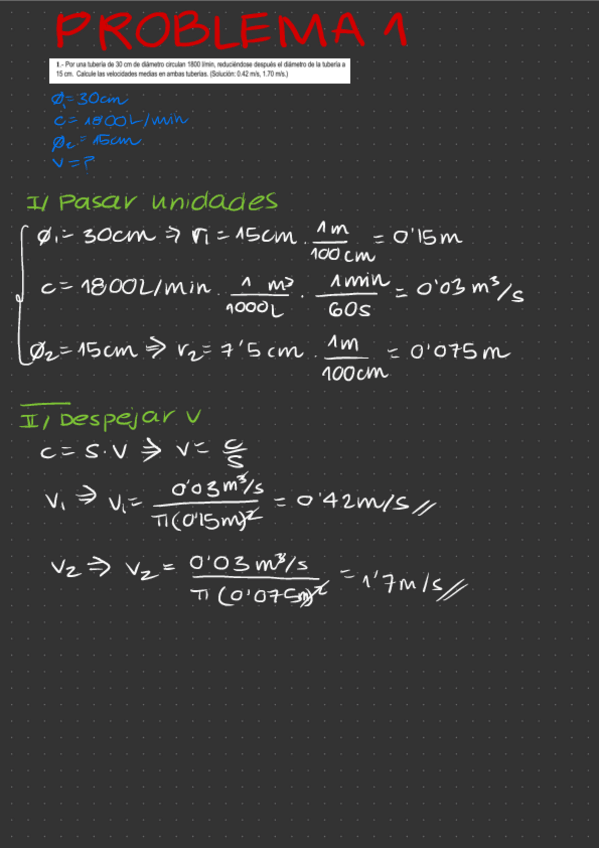 PROBLEMA 1
1.- Por una tubería de 30 cm de diámetro circulan 1800 l/min, reduciéndose después el diámetro de la tubería a
15 cm. Calcule las velocidades medias en ambas tuberías. (Solución: 0.42 m/s, 1.70 m/s.)
Ø₁=30cm
C=1800L/min
Ø₂=15cm
V=?
I/ Pasar unidades
Ø₁=30cm ⇒ r₁=15cm · 1m/100cm = 0'15m
C=1800L/min · 1 m³/1000L · 1min/60s = 0'03 m³/s
Ø₂=15cm ⇒ r₂=7'5cm · 1m/100cm = 0'075m
II/ Despejar V
C=S·V ⇒ V=C/S
V₁ ⇒ V₁= 0'03m³/s / π(0'15m)² = 0'42m/s //
V₂ ⇒ V₂= 0'03m³/s / π(0'075m)² = 1'7m/s //